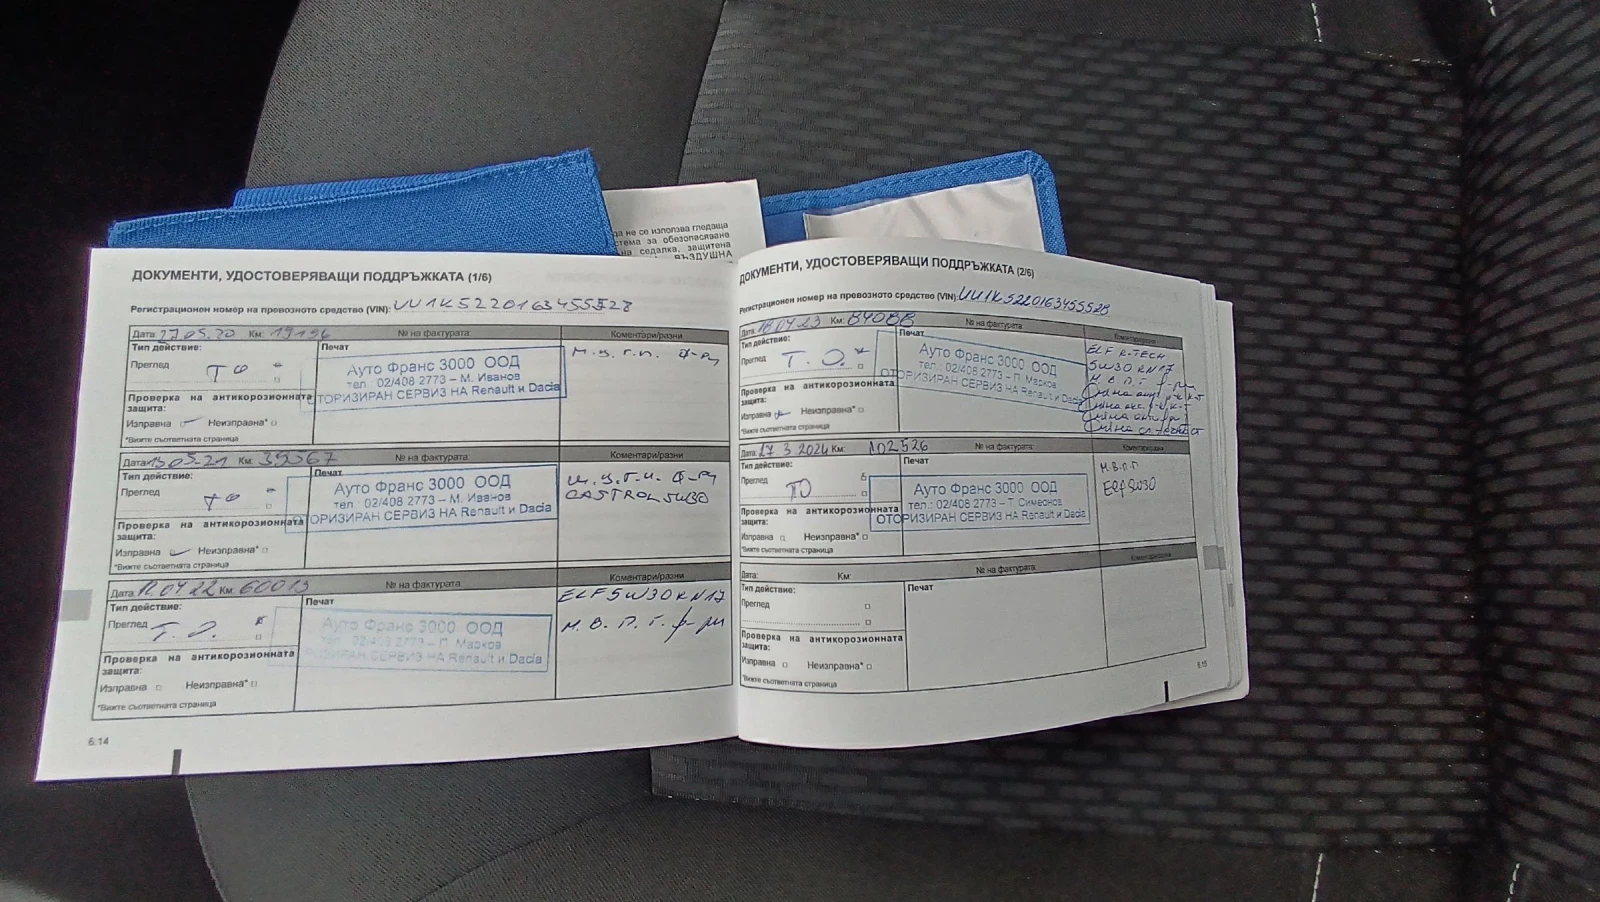 да не се използва гледаща
стема за обезопасяване
на седалка, защитена
ВЪЗДУШНА
ДОКУМЕНТИ, УДОСТОВЕРЯВАЩИ ПОДДРЪЖКАТА (1/6)
Регистрационен номер на превозното средство (VIN): UU1K5220163455528
Дата: 27.05.20 Км: 19196 № на фактурата: Коментари/разни
Тип действие: Печат
Преглед ТО
Ауто Франс 3000 ООД
тел.: 02/408 2773 – М. Иванов
ОТОРИЗИРАН СЕРВИЗ НА Renault и Dacia
Проверка на антикорозионната
защита:
Изправна Неизправна*
*Вижте съответната страница
Дата: 13.05.21 Км: 39367 № на фактурата: Коментари/разни
Тип действие: Печат
Преглед ТО
Ауто Франс 3000 ООД
тел.: 02/408 2773 – М. Иванов
ОТОРИЗИРАН СЕРВИЗ НА Renault и Dacia
CASTROL 5W30
Проверка на антикорозионната
защита:
Изправна Неизправна*
*Вижте съответната страница
Дата: 04 22 Км: 60013 № на фактурата: Коментари/разни
Тип действие: Печат
Преглед Т.О.
Ауто Франс 3000 ООД
тел.: 02/408 2773 – П. Марков
ОТОРИЗИРАН СЕРВИЗ НА Renault и Dacia
ELF 5W30 RN17
М. В. П. Г. ф-ри
Проверка на антикорозионната
защита:
Изправна Неизправна*
*Вижте съответната страница
6.14
ДОКУМЕНТИ, УДОСТОВЕРЯВАЩИ ПОДДРЪЖКАТА (2/6)
Регистрационен номер на превозното средство (VIN): UU1K5220163455528
Дата: 18.04.23 Км: 84088 № на фактурата: Коментари/разни
Тип действие: Печат
Преглед Т.О.
Ауто Франс 3000 ООД
тел.: 02/408 2773 – П. Марков
ОТОРИЗИРАН СЕРВИЗ НА Renault и Dacia
ELF R-TECH
5W30 RN17
М. В. П. Г. ф-ри
Проверка на антикорозионната
защита:
Изправна Неизправна*
*Вижте съответната страница
Дата: 27.3.2024 Км: 102526 № на фактурата: Коментари/разни
Тип действие: Печат
Преглед ТО
Ауто Франс 3000 ООД
тел.: 02/408 2773 – Т. Симеонов
ОТОРИЗИРАН СЕРВИЗ НА Renault и Dacia
М.В.П.Г
Elf 5W30
Проверка на антикорозионната
защита:
Изправна Неизправна*
*Вижте съответната страница
Дата: Км: № на фактурата: Коментари/разни
Тип действие: Печат
Преглед
Проверка на антикорозионната
защита:
Изправна Неизправна*
*Вижте съответната страница
6.15